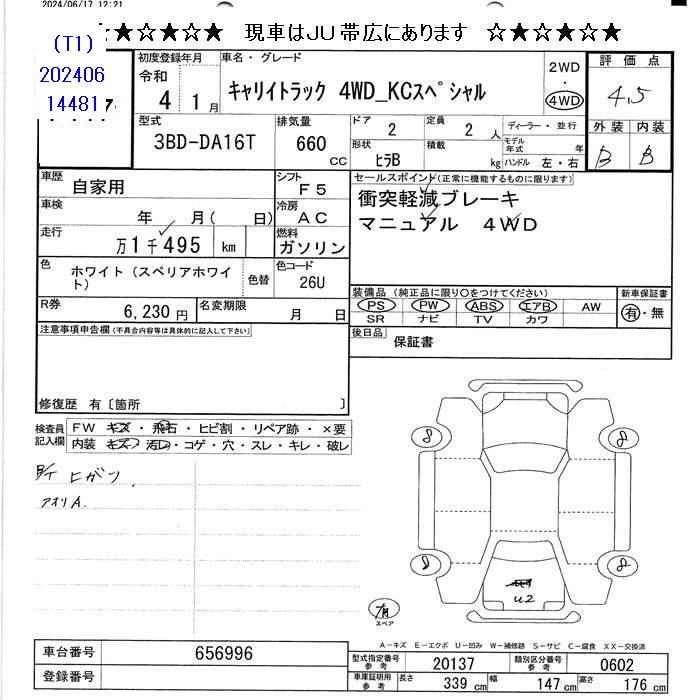 2024/06/17 12:21
★☆★☆★☆★ 現車はJU帯広にあります ☆★☆★☆★
(T1)
202406
14481
初度登録年月
令和
4 1月
車名・グレード
キャリイトラック 4WD_KCスペシャル
2WD
・
4WD
評価点
4.5
外装 内装
B B
型式
3BD-DA16T
排気量
660
CC
ドア
2
定員
2 人
ディーラー・並行
形状
ヒラB
積載
kg
モデル年式 年
ハンドル 左・右
車歴
自家用
シフト
F5
車検
年 月( 日)
冷房
AC
走行
万1千495 km
燃料
ガソリン
色
ホワイト(スペリアホワイト)
色替
色コード
26U
R券
6,230円
名変期限
月 日
セールスポイント(正常に機能するものに限ります)
衝突軽減ブレーキ
マニュアル 4WD
装備品(純正品に限り○をつけてください)
PS PW ABS エアB AW
SR ナビ TV カワ
新車保証書
有・無
後日品
保証書
注意事項申告欄(不具合内容等は具体的に記入して下さい)
修復歴 有〔箇所 〕
検査員記入欄
FW キズ・飛石・ヒビ割・リペア跡・×要
内装 キズ・汚れ・コゲ・穴・スレ・キレ・破レ
アオリA.
8 8
8 8
U2
スペア
A-キズ E-エクボ U-凹み W-補修跡 S-サビ C-腐食 XX-交換済
車台番号
656996
登録番号
型式指定番号参考
20137
類別区分番号参考
0602
車庫証明用参考
長さ 339cm 幅 147cm 高さ 176cm